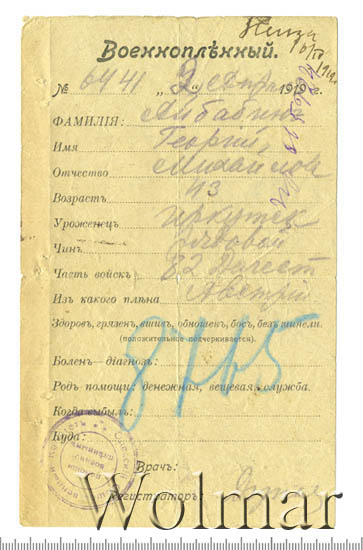 Пенза
Военноплѣнный.
№ 6441 „2„ Апр 1919
ФАМИЛІЯ:
Имя Георгій
Отчество Михайлов
Возрастъ 43
Уроженецъ Иркутск
Чинъ рядовой
Часть войскъ 82 Дагест
Изъ какого плѣна Австрій
Здоровъ, грязенъ, вшивъ, обношенъ, босъ, безъ шинели.
(положительное подчеркивается).
8745
Боленъ—діагнозъ:
Родъ помощи: денежная, вещевая, служба.
Когда выбылъ:
Куда:
Врачъ:
Регистраторъ:
Wolmar